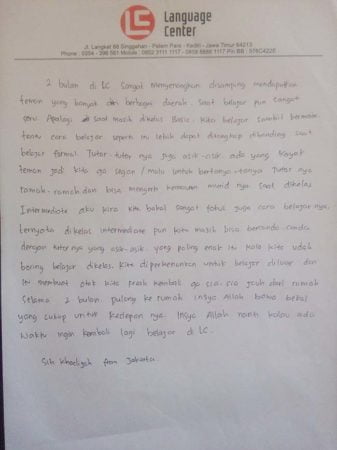 Language
Center
Jl. Langkat 88 Singgahan - Pelem Pare - Kediri - Jawa Timur 64213
2 bulan di LC sangat menyenangkan disamping mendapatkan
teman yang banyak dri berbagai daerah. saat belajar pun sangat
seru. Apalagi saat masih dikelas Basic. kita belajar sambil bermain
tentu cara belajar seperti ini lebih dapat ditangkap dibanding saat
belajar formal. Tutor-tutor nya juga asik-asik. ada yang kayak
teman jadi kita ga segan / malu untuk bertanya-tanya. Tutor nya
ramah-ramah dan bisa mengerti kemauan murid nya. Saat dikelas
Intermediate aku kira kita bakal sangat fokus juga cara belajar nya,
ternyata dikelas intermediate pun kita masih bisa bercanda-canda
dengan tutor nya yang asik-asik. yang paling enak itu kalo kita udah
boring belajar dikelas. kita diperkenankan untuk belajar diluar dan
ini membuat otak kita fresh kembali. ga sia-sia jauh dari rumah
selama 2 bulan. pulang ke rumah insya Allah bawa bekal
yang cukup untuk kedepan nya. Insya Allah nanti kalau ada
waktu ingin kembali lagi belajar di LC.
Siti from Jakarta